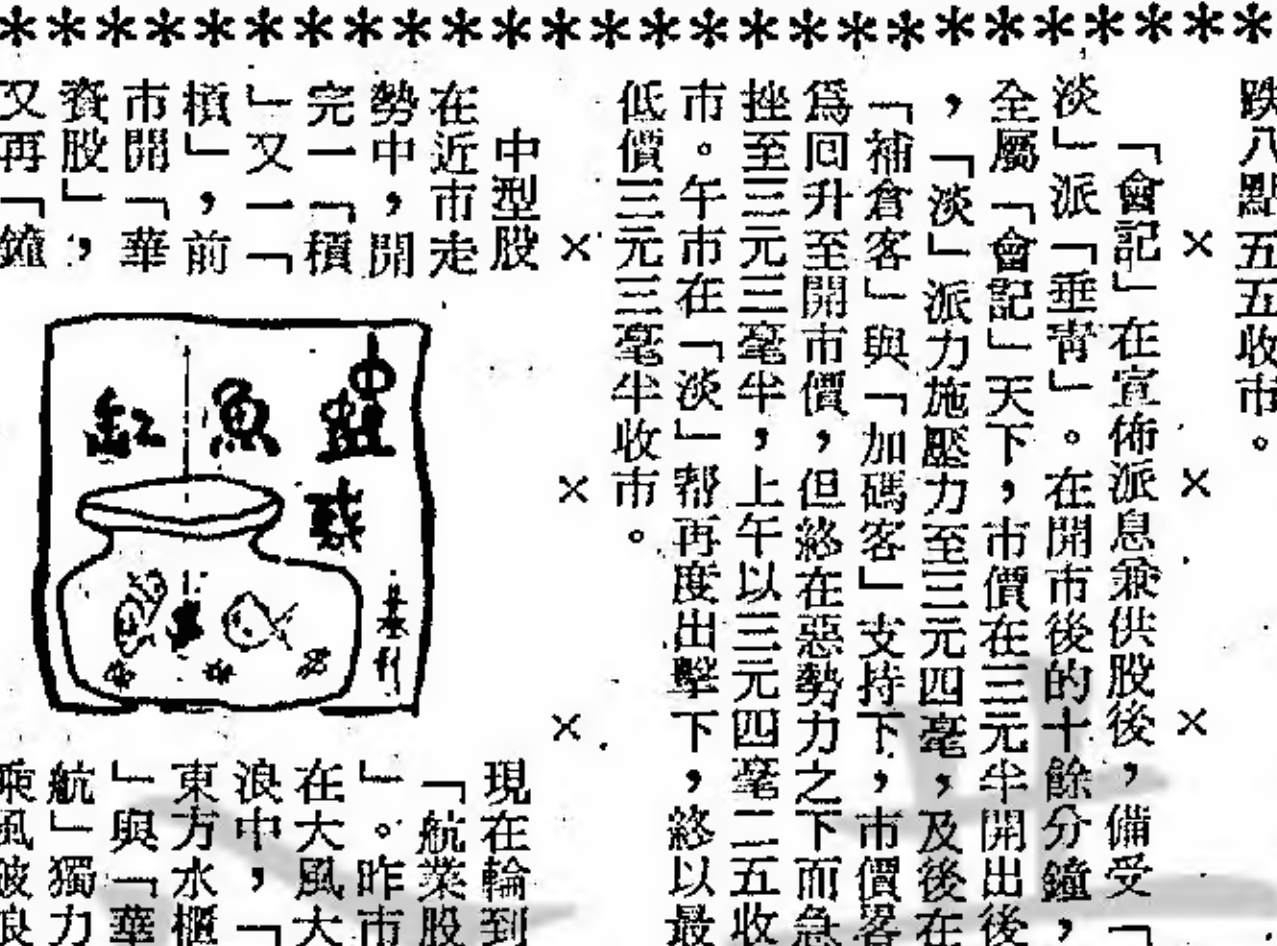 跌八點五五收市。
「會記」在宣佈派息兼供股後,備受「
淡」派「垂青」。在開市後的十餘分鐘,
全屬「會記」天下,市價在三元半開出後
,「淡」派力施壓力至三元四毫,及後在
「補倉客」與「加碼客」支持下,市價畧
爲回升至開市價,但終在惡勢力之下而急
挫至三元三毫半,上午以三元四毫二五收
市。午市在「淡」帮再度出擊下,終以最
低價三元三毫半收市。
中型股
在近市走
勢中,開
完一「積
」又一「
槓」,前
市開「華
資股」,
又再「鐘
魚缸
現在輪到
「航業股
」。昨市
在大風大
浪中,「
東方水櫃
」與「華
航」獨力
乘風破浪